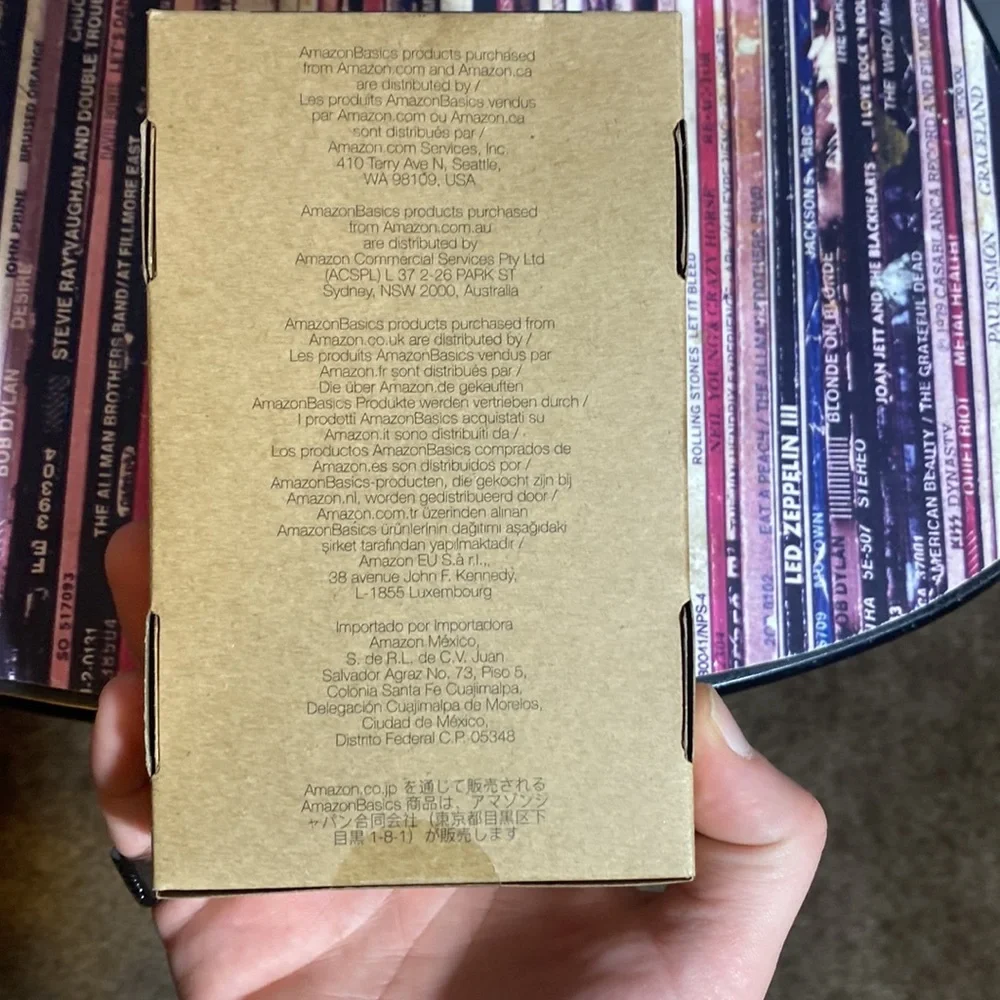 AmazonBasics products purchased
from Amazon.com and Amazon.ca
are distributed by /
Les produits AmazonBasics vendus
par Amazon.com ou Amazon.ca
sont distribués par /
Amazon.com Services, Inc.
410 Terry Ave N, Seattle,
WA 98109, USA
AmazonBasics products purchased
from Amazon.com.au
are distributed by
Amazon Commercial Services Pty Ltd
(ACSPL) L 37 2-26 PARK ST
Sydney, NSW 2000, Australia
AmazonBasics products purchased from
Amazon.co.uk are distributed by /
Les produits AmazonBasics vendus par
Amazon.fr sont distribués par /
Die über Amazon.de gekauften
AmazonBasics Produkte werden vertrieben durch /
I prodotti AmazonBasics acquistati su
Amazon.it sono distribuiti da /
Los productos AmazonBasics comprados de
Amazon.es son distribuidos por /
AmazonBasics-producten, die gekocht zijn bij
Amazon.nl, worden gedistribueerd door /
Amazon.com.tr üzerinden alınan
AmazonBasics ürünlerinin dağıtımı aşağıdaki
şirket tarafından yapılmaktadır /
Amazon EU S.à r.l.,
38 avenue John F. Kennedy,
L-1855 Luxembourg
Importado por Importadora
Amazon México,
S. de R.L. de C.V. Juan
Salvador Agraz No. 73, Piso 5,
Colonia Santa Fe Cuajimalpa,
Delegación Cuajimalpa de Morelos,
Ciudad de México,
Distrito Federal C.P. 05348
Amazon.co.jp を通じて販売される
AmazonBasics 商品は、アマゾンジ
ャパン合同会社（東京都目黒区下
目黒 1-8-1）が販売します
BOB DYLAN DESIRE
JOHN PRINE BRUISED ORANGE
SO 517093
STEVIE RAY VAUGHAN AND DOUBLE TROUBLE
DAVID BOWIE LET'S DAN
THE ALLMAN BROTHERS BAND/AT FILLMORE EAST
ROLLING STONES LET IT BLEED
NEIL YOUNG & CRAZY HORSE RE·AC·TOR
EAT A PEACH / THE ALLMAN BROTHERS BAND
LED ZEPPELIN III
JACKSON 5 ABC
MOTOWN
BOB DYLAN BLONDE ON BLONDE
5E-507 STEREO
JOAN JETT AND THE BLACKHEARTS I LOVE ROCK N ROLL
THE WHO/Me
AMERICAN BEAUTY / THE GRATEFUL DEAD
KISS DYNASTY © 1979 CASABLANCA RECORD AND FILMWORKS
QUIET RIOT METAL HEALTH
TATTOO YOU
PAUL SIMON GRACELAND